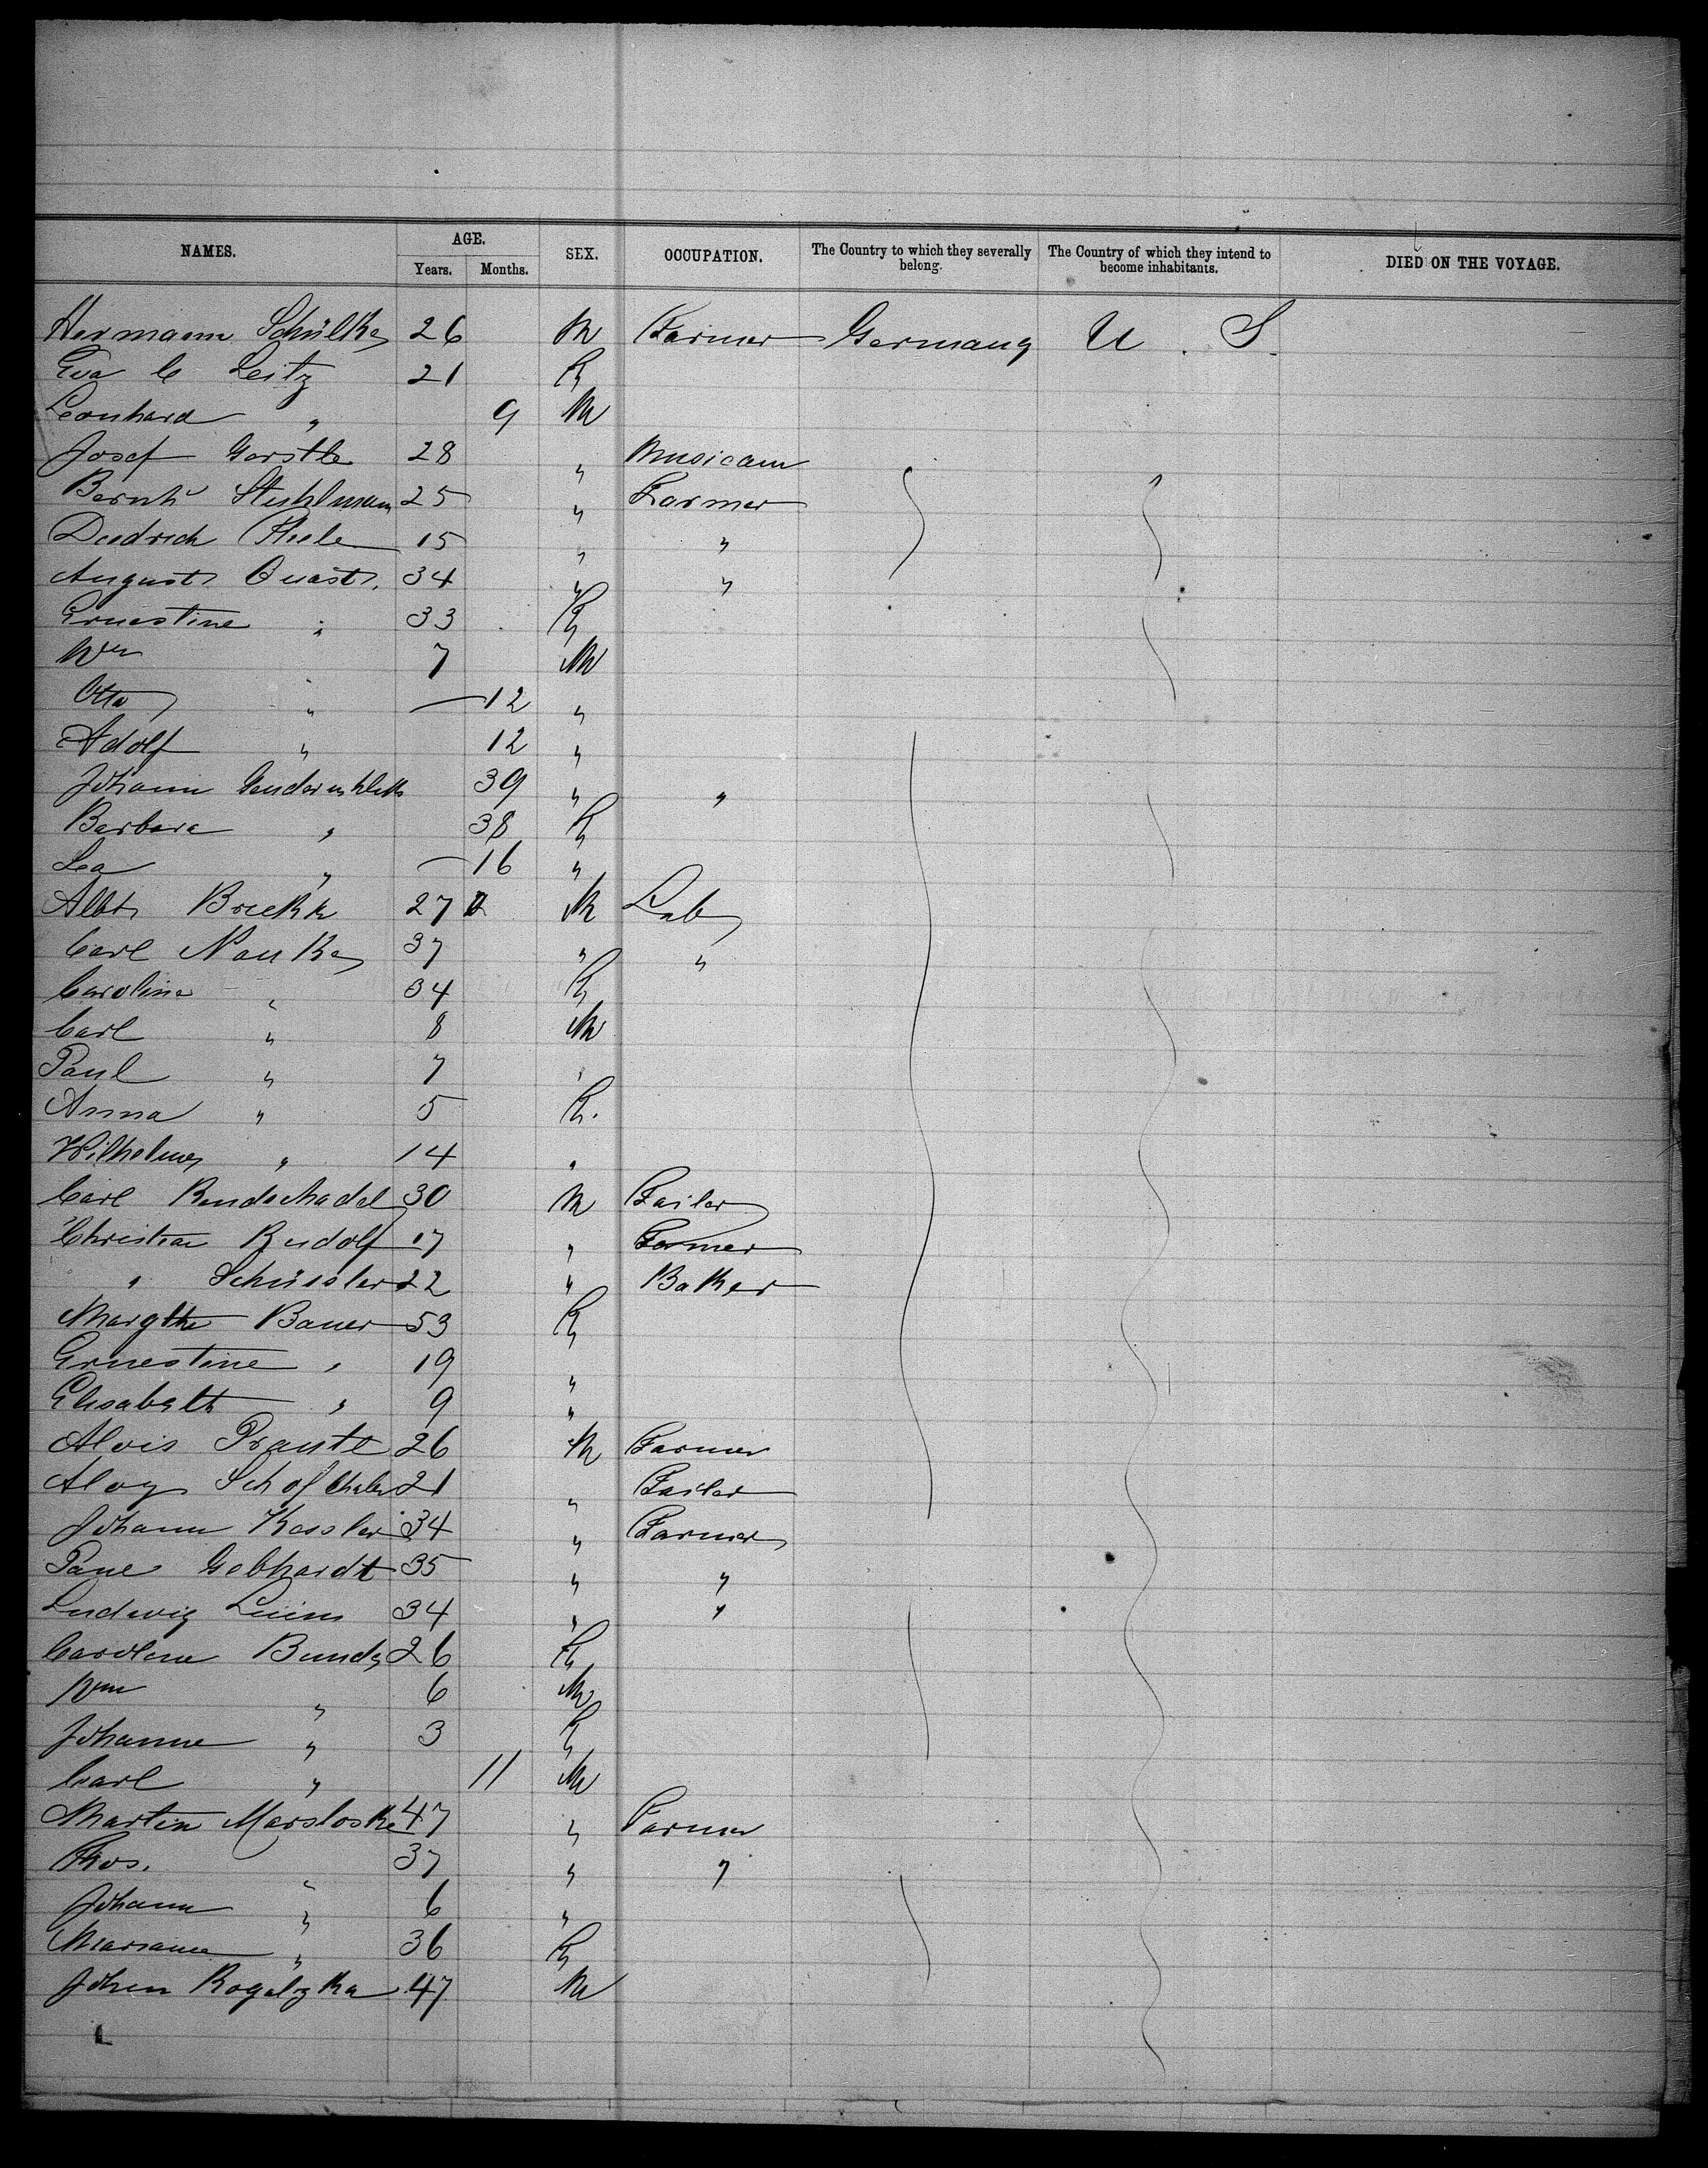 NAMES. AGE. SEX. OCCUPATION. The Country to which they severally belong. The Country of which they intend to become inhabitants. DIED ON THE VOYAGE.
Years. Months.
Hermann Schülke 26 M Farmer Germany U. S.
Eva C Leitz 21 F
Leonhard " 9 M
Josef Gerstle 28 " Musicam
Bernhd Stuhlmann 25 " Farmer
Diedrich Thiele 15 " "
August Quast 34 " "
Ernestine " 33 F
Wm " 7 M
Otto " — 12 "
Adolf " 12 "
Johann 39 " "
Barbara " 38 F
Lea " — 16 "
Albt 27 M Lab
Carl Nauke 37 " "
Caroline " 34 F
Carl " 8 M
Paul " 7 "
Anna " 5 F.
Wilhelm " 14 "
Carl Rendschadel 30 M Tailor
Christian Rudolf 17 " Farmer
" Schüssler 22 " Baker
Margthe Bauer 53 F
Ernestine " 19 "
Elisabeth " 9 "
Alois Prantl 26 M Farmer
Aloys 21 " Tailor
Johann Kessler 34 " Farmer
Paul Gebhardt 35 " "
Ludwig 34 " "
Caroline Bundy 26 F
Wm " 6 M
Johanne " 3 F
Carl " 11 M
Martin Marsloske 47 " Farmer
Thos. " 37 " "
Johann " 6 "
Marianne " 36 F
Johen Rogalzka 47 M